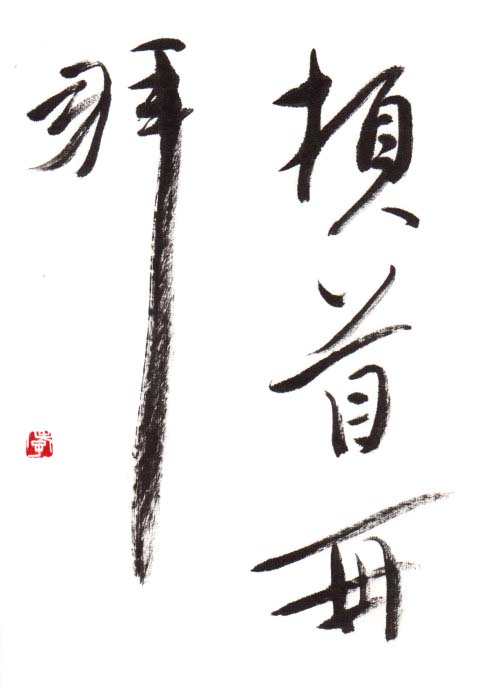 頓首再
拜